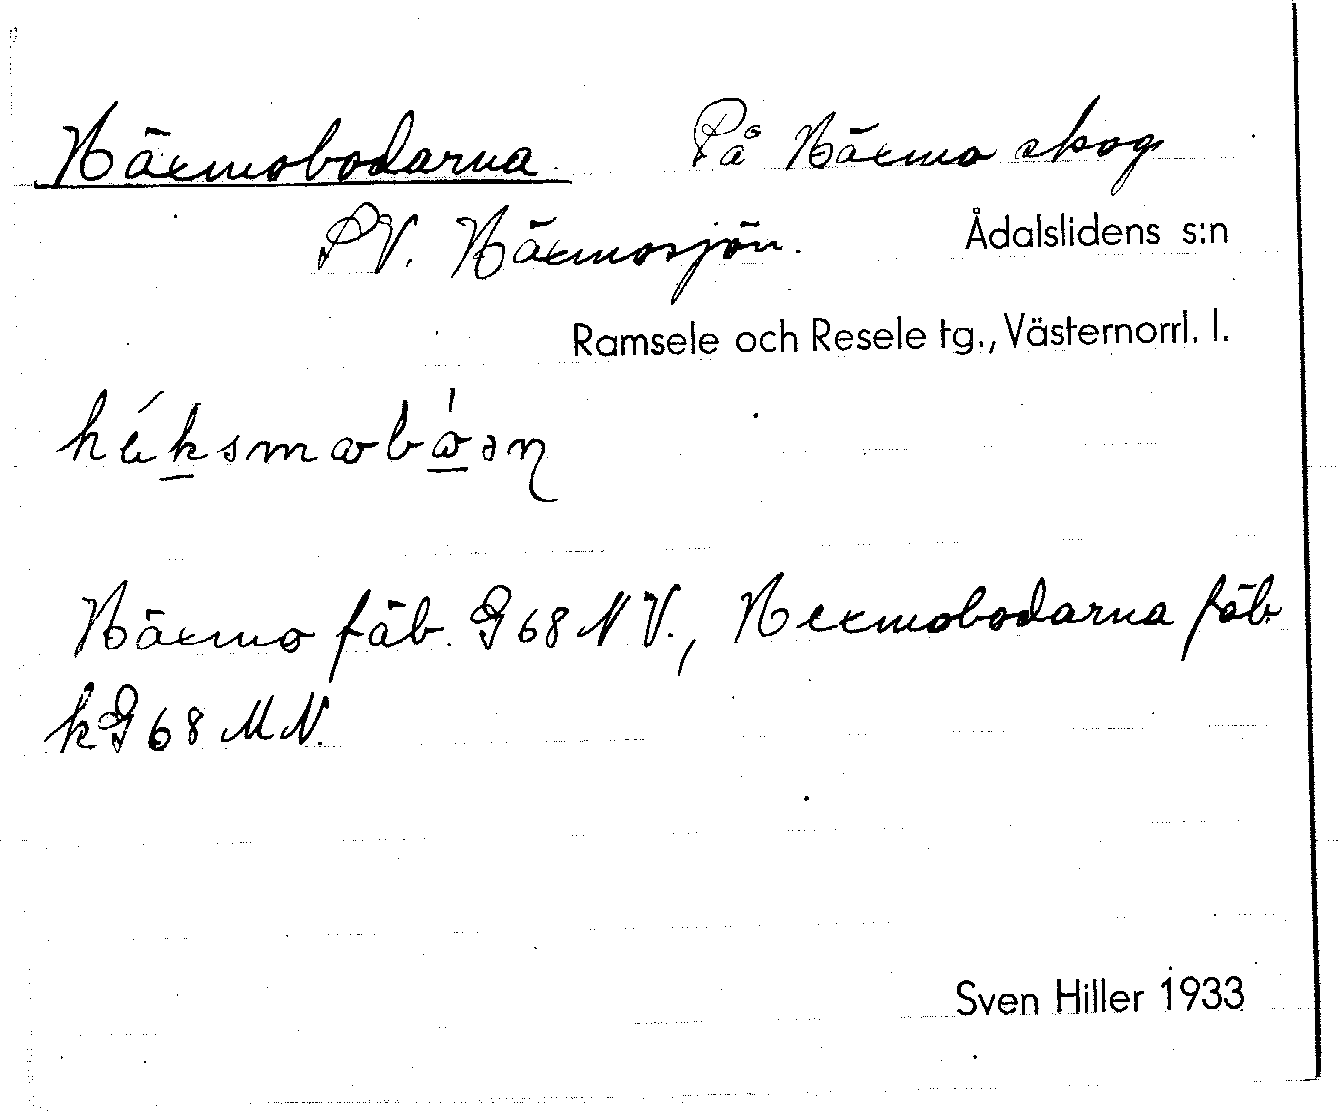 Häxmobodarna. På Häxmo skog
SV. Häxmosjön. Ådalslidens s:n
Ramsele och Resele tg., Västernorrl. l.
Häxmo fäb. G 68 NV., Hexmobodarna fäb.
kG 68 MN.
Sven Hiller 1933